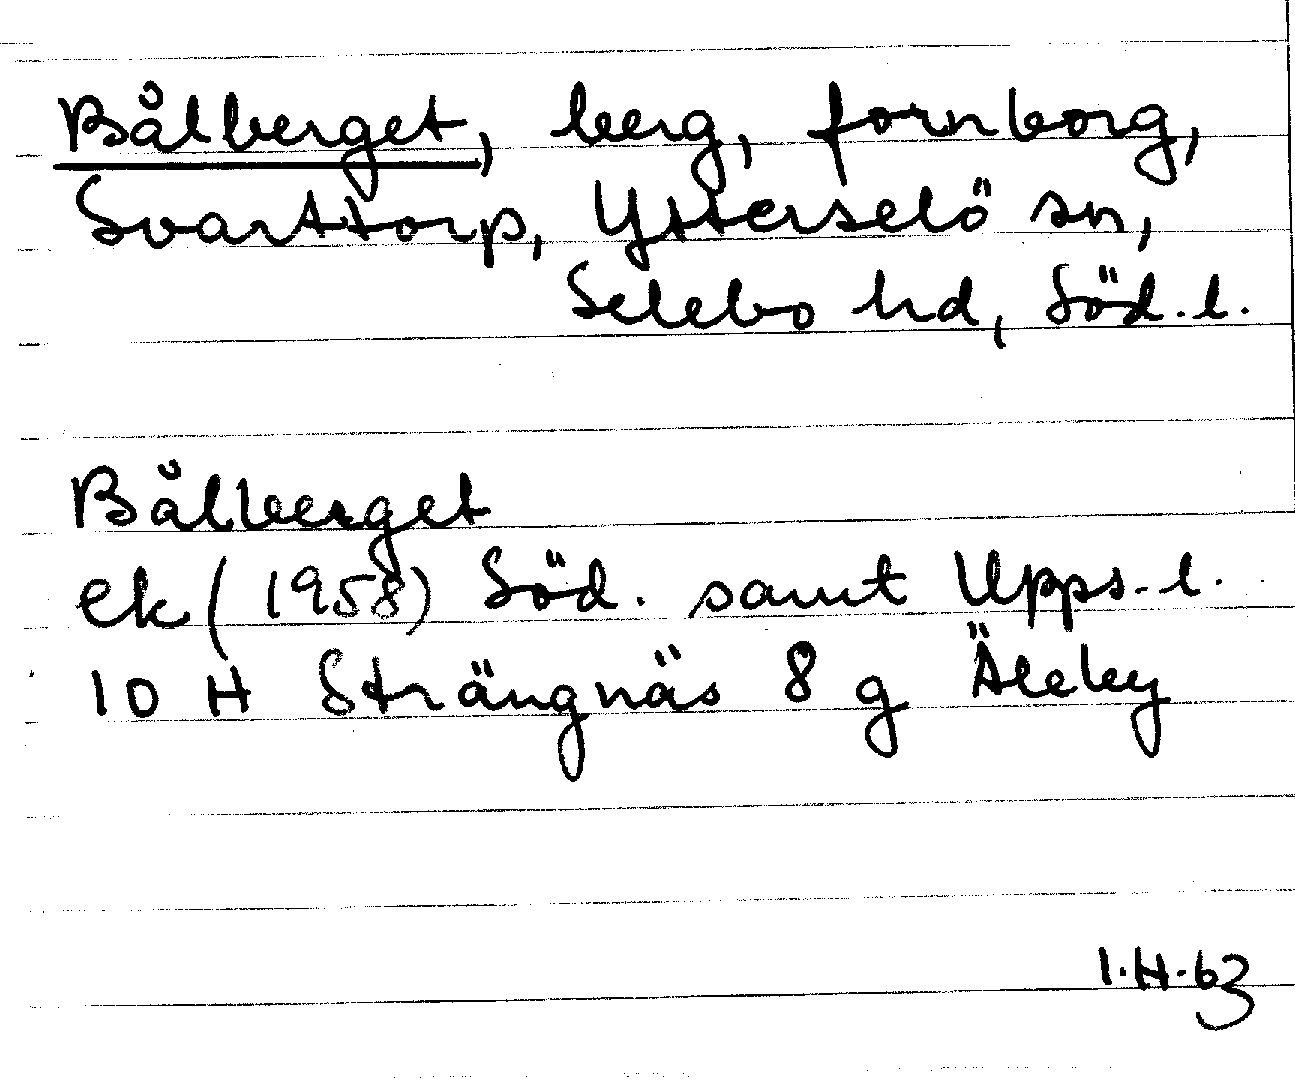 Bålberget, berg, fornborg,
Svarttorp, Ytterselö sn,
Selebo hd, Söd.l.
Bålberget
ek (1958) Söd. samt Upps.l.
10 H Strängnäs 8 g Äleby
I.H.63